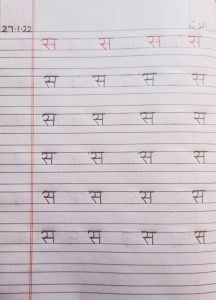 27.1.22
स स स स
स स स स
स स स स
स स स स
स स स स
स स स स